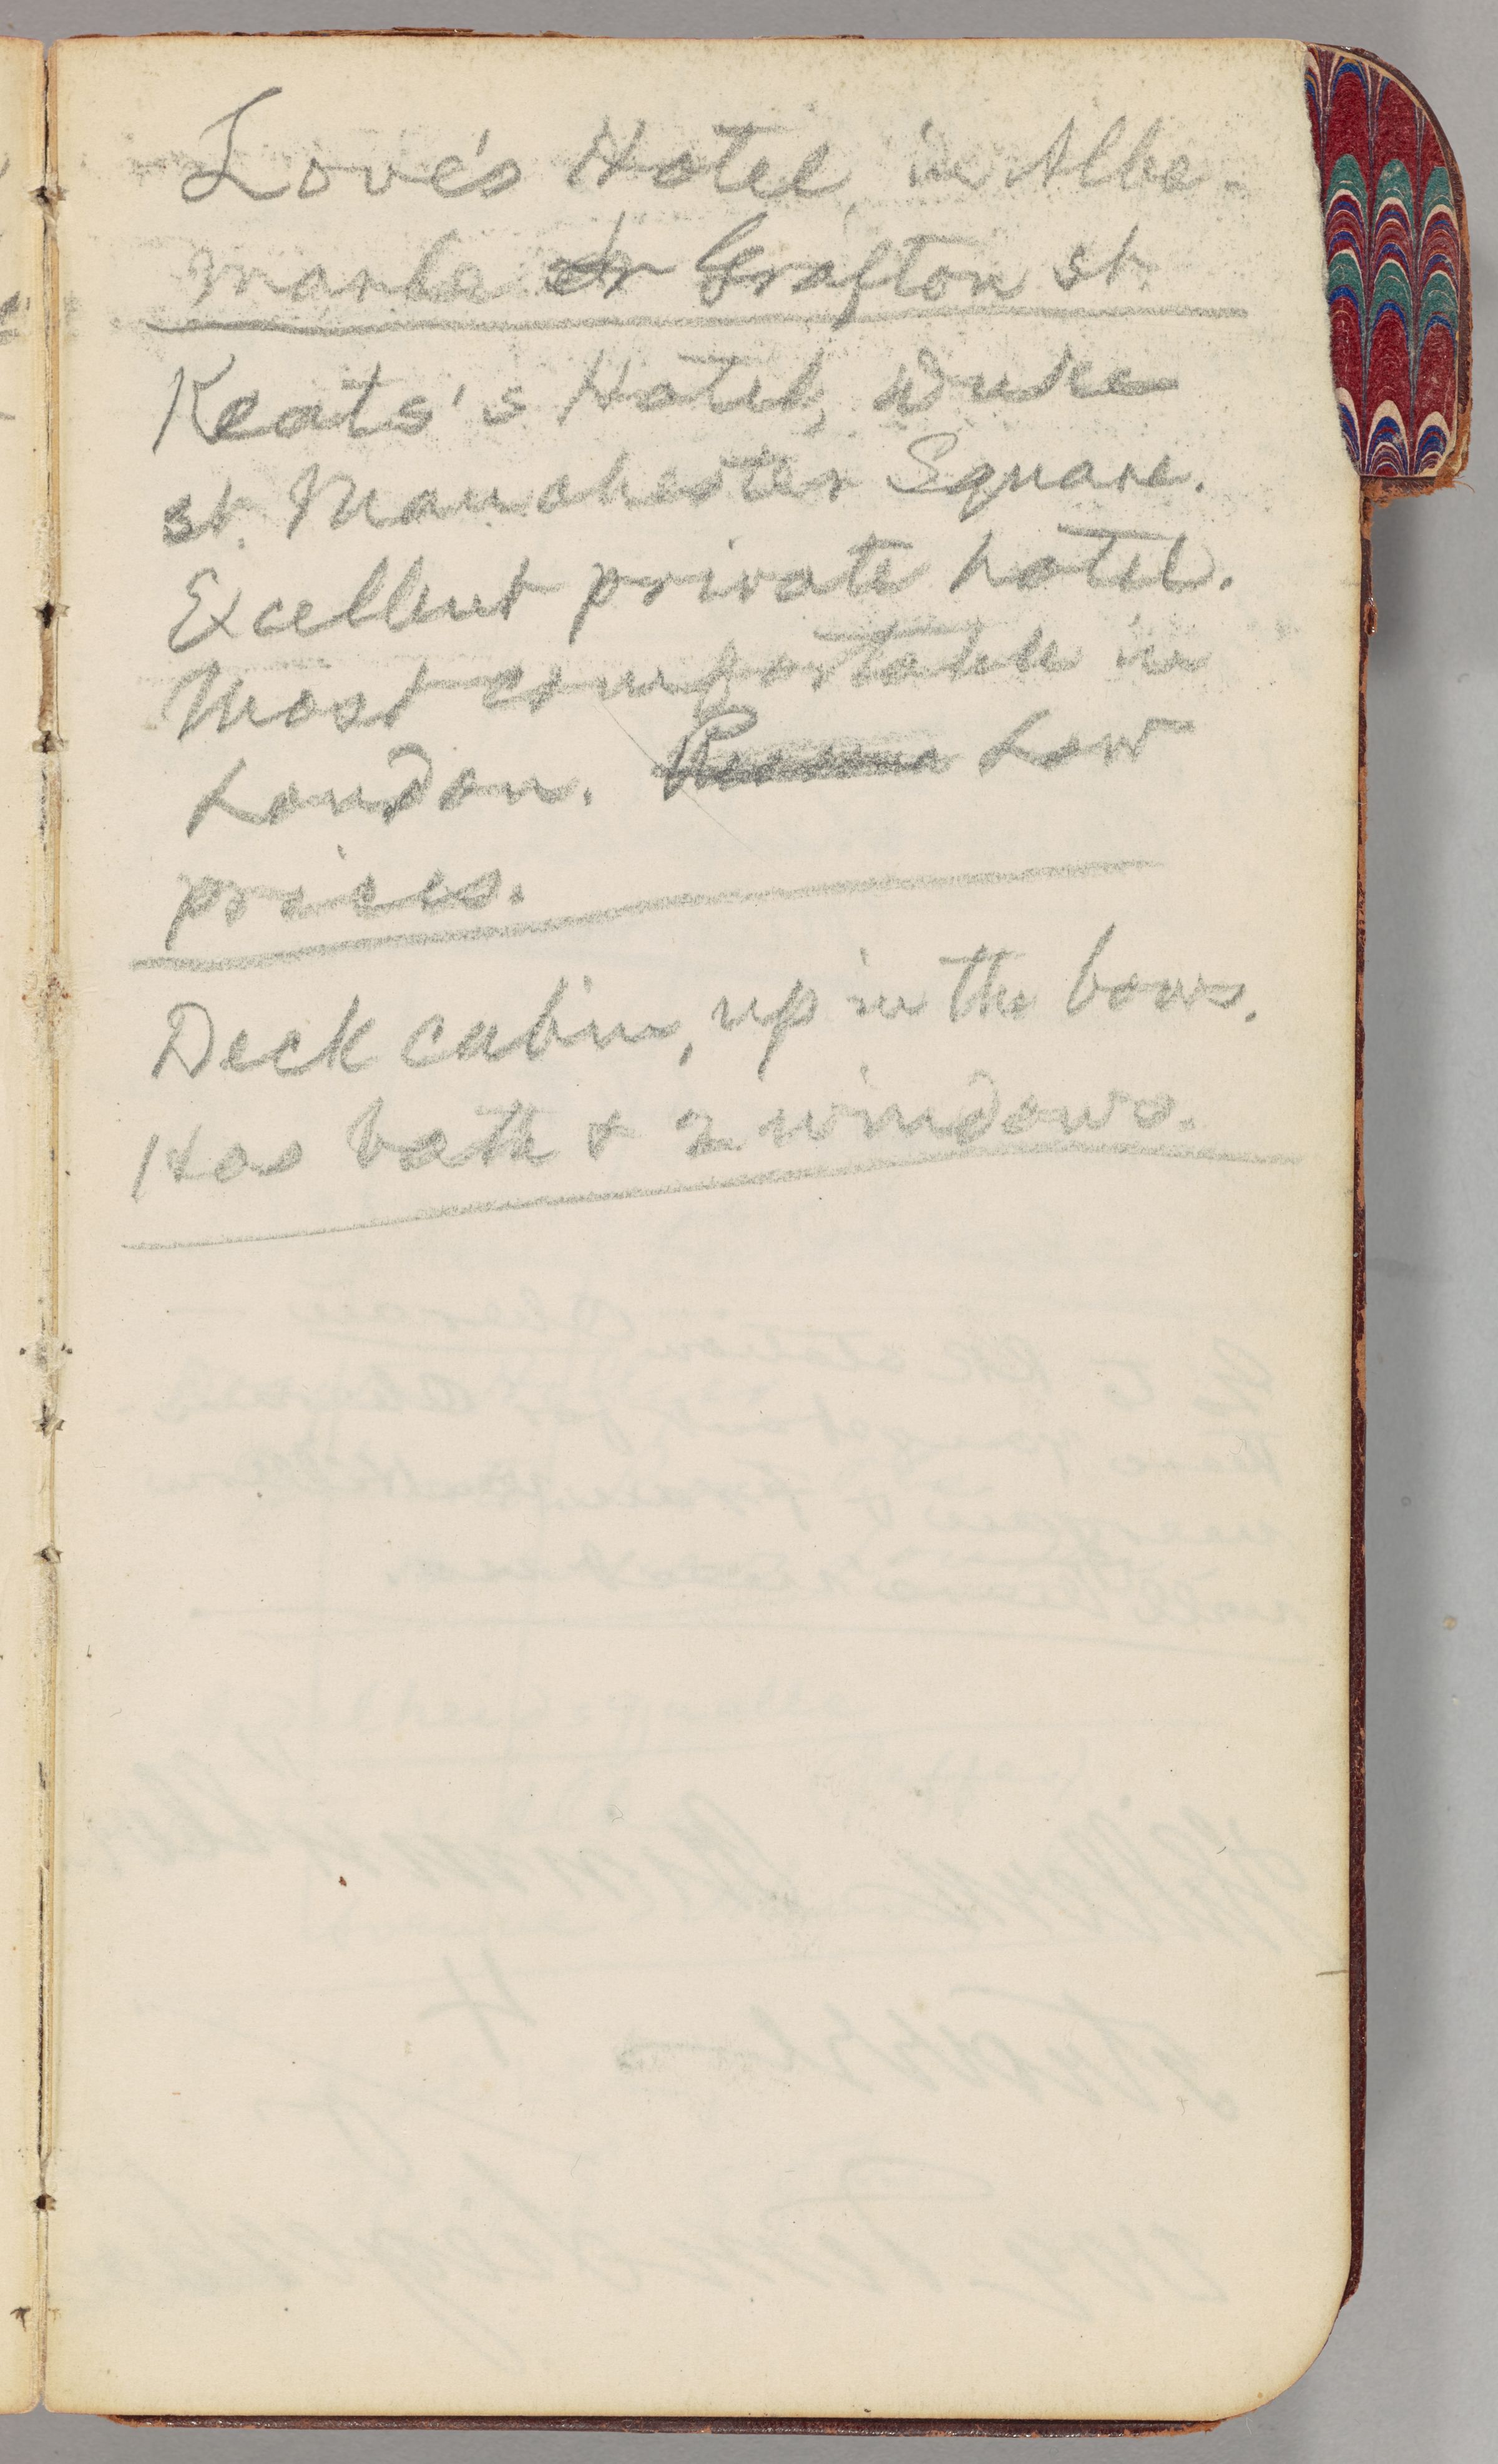 Love's Hotel, in Albe-
marle or Grafton st.
Keats's Hotel, Duke
st. Manchester Square.
Excellent private hotel.
Most comfortable in
London. Low
prices.
Deck cabin, up in the bows.
Has bath & 2 windows.